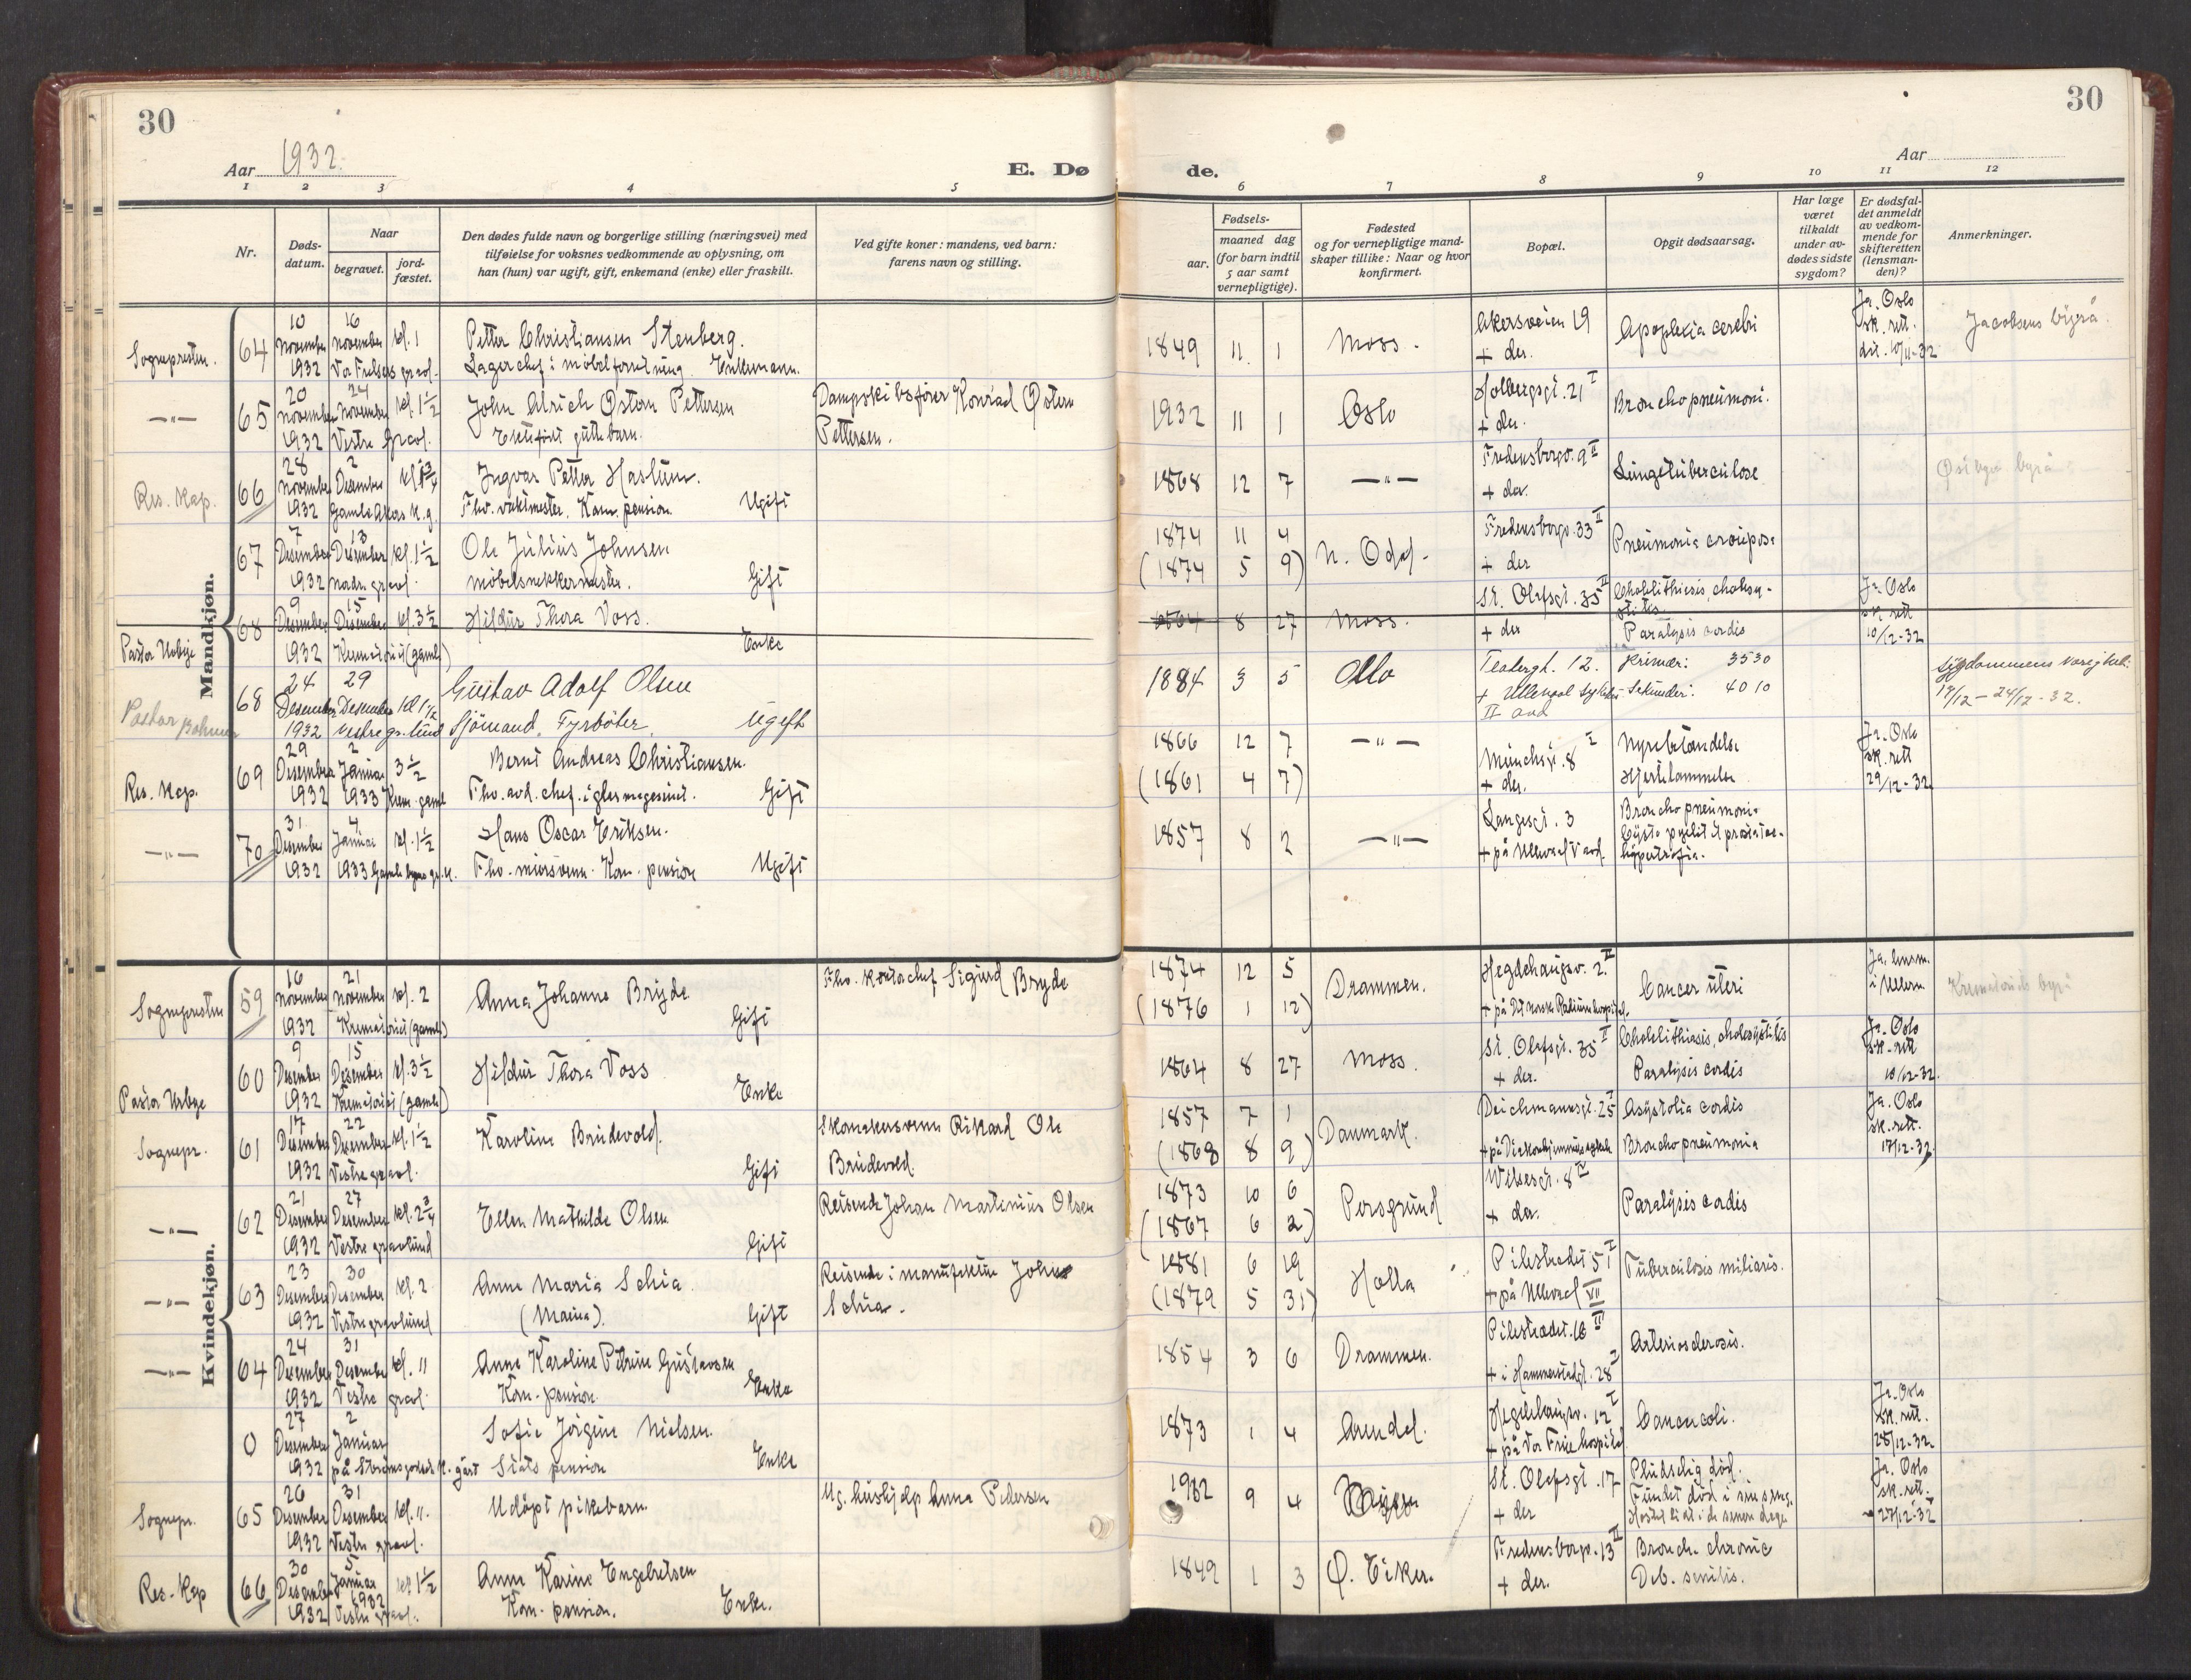 30
30
Aar 1932.
E. Dø
de.
Aar
1 2 3 4 5
6 7 8 9 10 11 12
Nr.
Døds-
datum.
Naar
begravet.
jord-
fæstet.
Den dødes fulde navn og borgerlige stilling (næringsvei) med
tilføielse for voksnes vedkommende av oplysning, om
han (hun) var ugift, gift, enkemand (enke) eller fraskilt.
Ved gifte koner: mandens, ved barn:
farens navn og stilling.
Fødsels-
aar.
maaned dag
(for barn indtil
5 aar samt
vernepligtige).
Fødested
og for vernepligtige mand-
skaper tillike: Naar og hvor
konfirmert.
Bopæl.
Opgit dødsaarsag.
Har læge
været
tilkaldt
under av-
dødes sidste
sygdom?
Er dødsfal-
det anmeldt
av vedkom-
mende for
skifteretten
(lensman-
den)?
Anmerkninger.
Mandkjøn.
Sognepresten.
64
10 november 1932
16 november kl. 1
Vor Frelsers gravl.
Petter Christiansen Stenberg.
Lagerchef i møbelforretning. Enkemann.
1849 11 1
Moss.
Akersveien 19
+ der.
Apoplexia cerebri
Ja. Oslo
sk. rett.
Jacobsens byrå.
-"-
65
20 november 1932
24 november kl. 1 1/2
Vestre Gravl.
John Ulrich Østern Pettersen
Ektefødt guttebarn.
Dampskibsfører Konrad Østern
Pettersen.
1932 11 1
Oslo
Holbergsgt. 21 I
+ der.
Bronchopneumoni.
Res. Kap.
66
28 november 1932
2 Desember
Gamle Akers k.g.
Ingvar Petter Haslum.
Fhv. vaktmester. Kom. pension Ugift
1868 12 7
-"-
Fredensborgv. 9 II
+ der.
Lungetuberculose
67
7 Desember 1932
13 Desember kl. 1 1/2
Nordre gravl.
Ole Julius Johnsen
møbelsnekkermester. Gift
1874 11 4
(1874 5 9)
N. Odal.
Fredensborgv. 33 II
+ der
Pneumonia crouposa
Pastor Urbye
68
9 Desember 1932
15 Desember kl. 3 1/2
Krematoriet (gamle)
Hildur Thora Voss.
Enke
1864 8 27
Moss.
St. Olafsgt. 35 II
+ der
Cholelithiasis, cholecy-
stitis.
Paralysis cordis
Ja. Oslo
sk. rett
10/12-32
Pastor
68
24 Desember 1932
29 Desember
Vestre gr.lund
Gustav Adolf Olsen
Sjömand. Fyrböter. Ugift
1884 3 5
Oslo
Teatergt. 12.
+ Ullevaal sykehus
II avd
Primær: 3530
Sekundær: 4010
Sygdommens varighet:
17/12 - 24/12 - 32.
Res. Kap.
69
29 Desember 1932
2 Januar 1933 3 1/2
Krem. gamle
Bernt Andreas Christiansen.
Fhv. avd. chef. i glasmagasinet. Gift
1866 12 7
(1861 4 7)
-"-
Munchsgt. 8 I
+ der.
Nyrebetændelse
Hjertelammelse
Ja. Oslo
sk. rett
29/12-32.
-"-
70
31 Desember 1932
4 Januar 1933 kl. 1 1/2
Hans Oscar Eriksen.
Fhv. mursvenn. Kom. pension Ugift
1857 8 2
-"-
Langesgt. 3
+ på Ullevaal V avd.
Bronchopneumoni.
Cysto pyelit et prostatae-
hypertrofia.
Kvindekjøn.
Sognepresten
59
16 november 1932
21 november kl. 2
Krematoriet (gamle)
Anna Johanne Bryde
Gift
Fhv. kontorchef Sigurd Bryde
1874 12 5
(1876 1 12)
Drammen.
Hegdehaugsv. 2. II
+ på Det norske Radiumhospital.
Cancer uteri
Ja. lensm.
i Ullern
Krematoriets byrå
Pastor Urbye
60
9 Desember 1932
15 Desember kl. 3 1/2
Krematoriet (gamle)
Hildur Thora Voss
Enke
1864 8 27
Moss.
St. Olafsgt. 35 II
+ der.
Cholelithiasis, cholecystitis
Paralysis cordis
Ja. Oslo
sk. rett
10/12-32.
Sognepr.
61
17 Desember 1932
22 Desember kl. 1 1/2
Vestre gravl.
Karoline Brudevold.
Gift
Skomakersvenn Rikard Ole
Brudevold.
1857 7 1
(1868 8 9)
Danmark.
Deichmannsgt. 25 I
Asystolia cordis
Bronchopneumonia
Ja. Oslo
sk. rett.
17/12-32.
-"-
62
21 Desember 1932
27 Desember kl. 2 3/4
Vestre gravlund
Ellen Mathilde Olsen
Gift
Reisende Johan Martinius Olsen
1873 10 6
(1867 6 2)
Porsgrund
Wilsesgt. 8 IV
+ der.
Paralysis cordis
-"-
63
23 Desember 1932
30 Desember kl. 2
Vestre gravlund
Anne Maria Schia
(Maria). Gift
Reisende i manufaktur Johs
Schia.
1881 6 19
(1879 5 31)
Holla
Pilestredet 51 I
+ på Ullevaal VII
Tuberculosis miliaris.
-"-
64
24 Desember 1932
31 Desember kl. 11
Vestre gravl.
Anne Karoline Petrine Gustavsen
Kom. pension. Enke
1854 3 6
Drammen.
Pilestredet. 16 II
+ i Hammerstadgt. 28 I
Arteriosclerosis.
0
27 Desember 1932
2 Januar
Sofie Jörgine Nielsen.
Stats pension Enke
1873 1 4
Arendal.
Hegdehaugsv. 12 I
+ på Vor Frue hospital
Cancer coli.
Ja. Oslo
sk. rett.
28/12-32.
Sognepr.
65
26 Desember 1932
31 Desember kl. 11.
Vestre gravl.
Udöpt pikebarn
Ug. hushjelp Anna Pedersen
1932 9 4
St. Olafsgt. 17
+ der
Pludselig död.
Fundet död i sin seng.
Hostet litt i de senere dage
Ja. Oslo
sk. rett.
27/12-32
Res. Kap
66
30 Desember 1932
5 Januar 1932 kl 1 1/2
Vestre gravl.
Anne Karine Engebretsen
Kom. pension. Enke.
1849 1 3
Ø. Eiker.
Fredensborgv. 13 II
+ der.
Bronch. chronic
Deb. senilis.